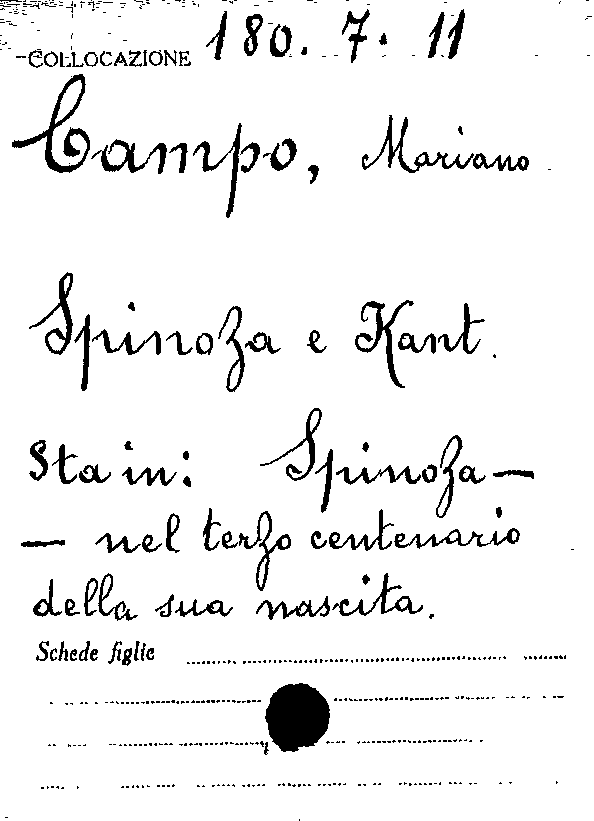 COLLOCAZIONE 180. 7. 11
Campo, Mariano
Spinoza e Kant.
Sta in: Spinoza —
— nel terzo centenario
della sua nascita.
Schede figlie